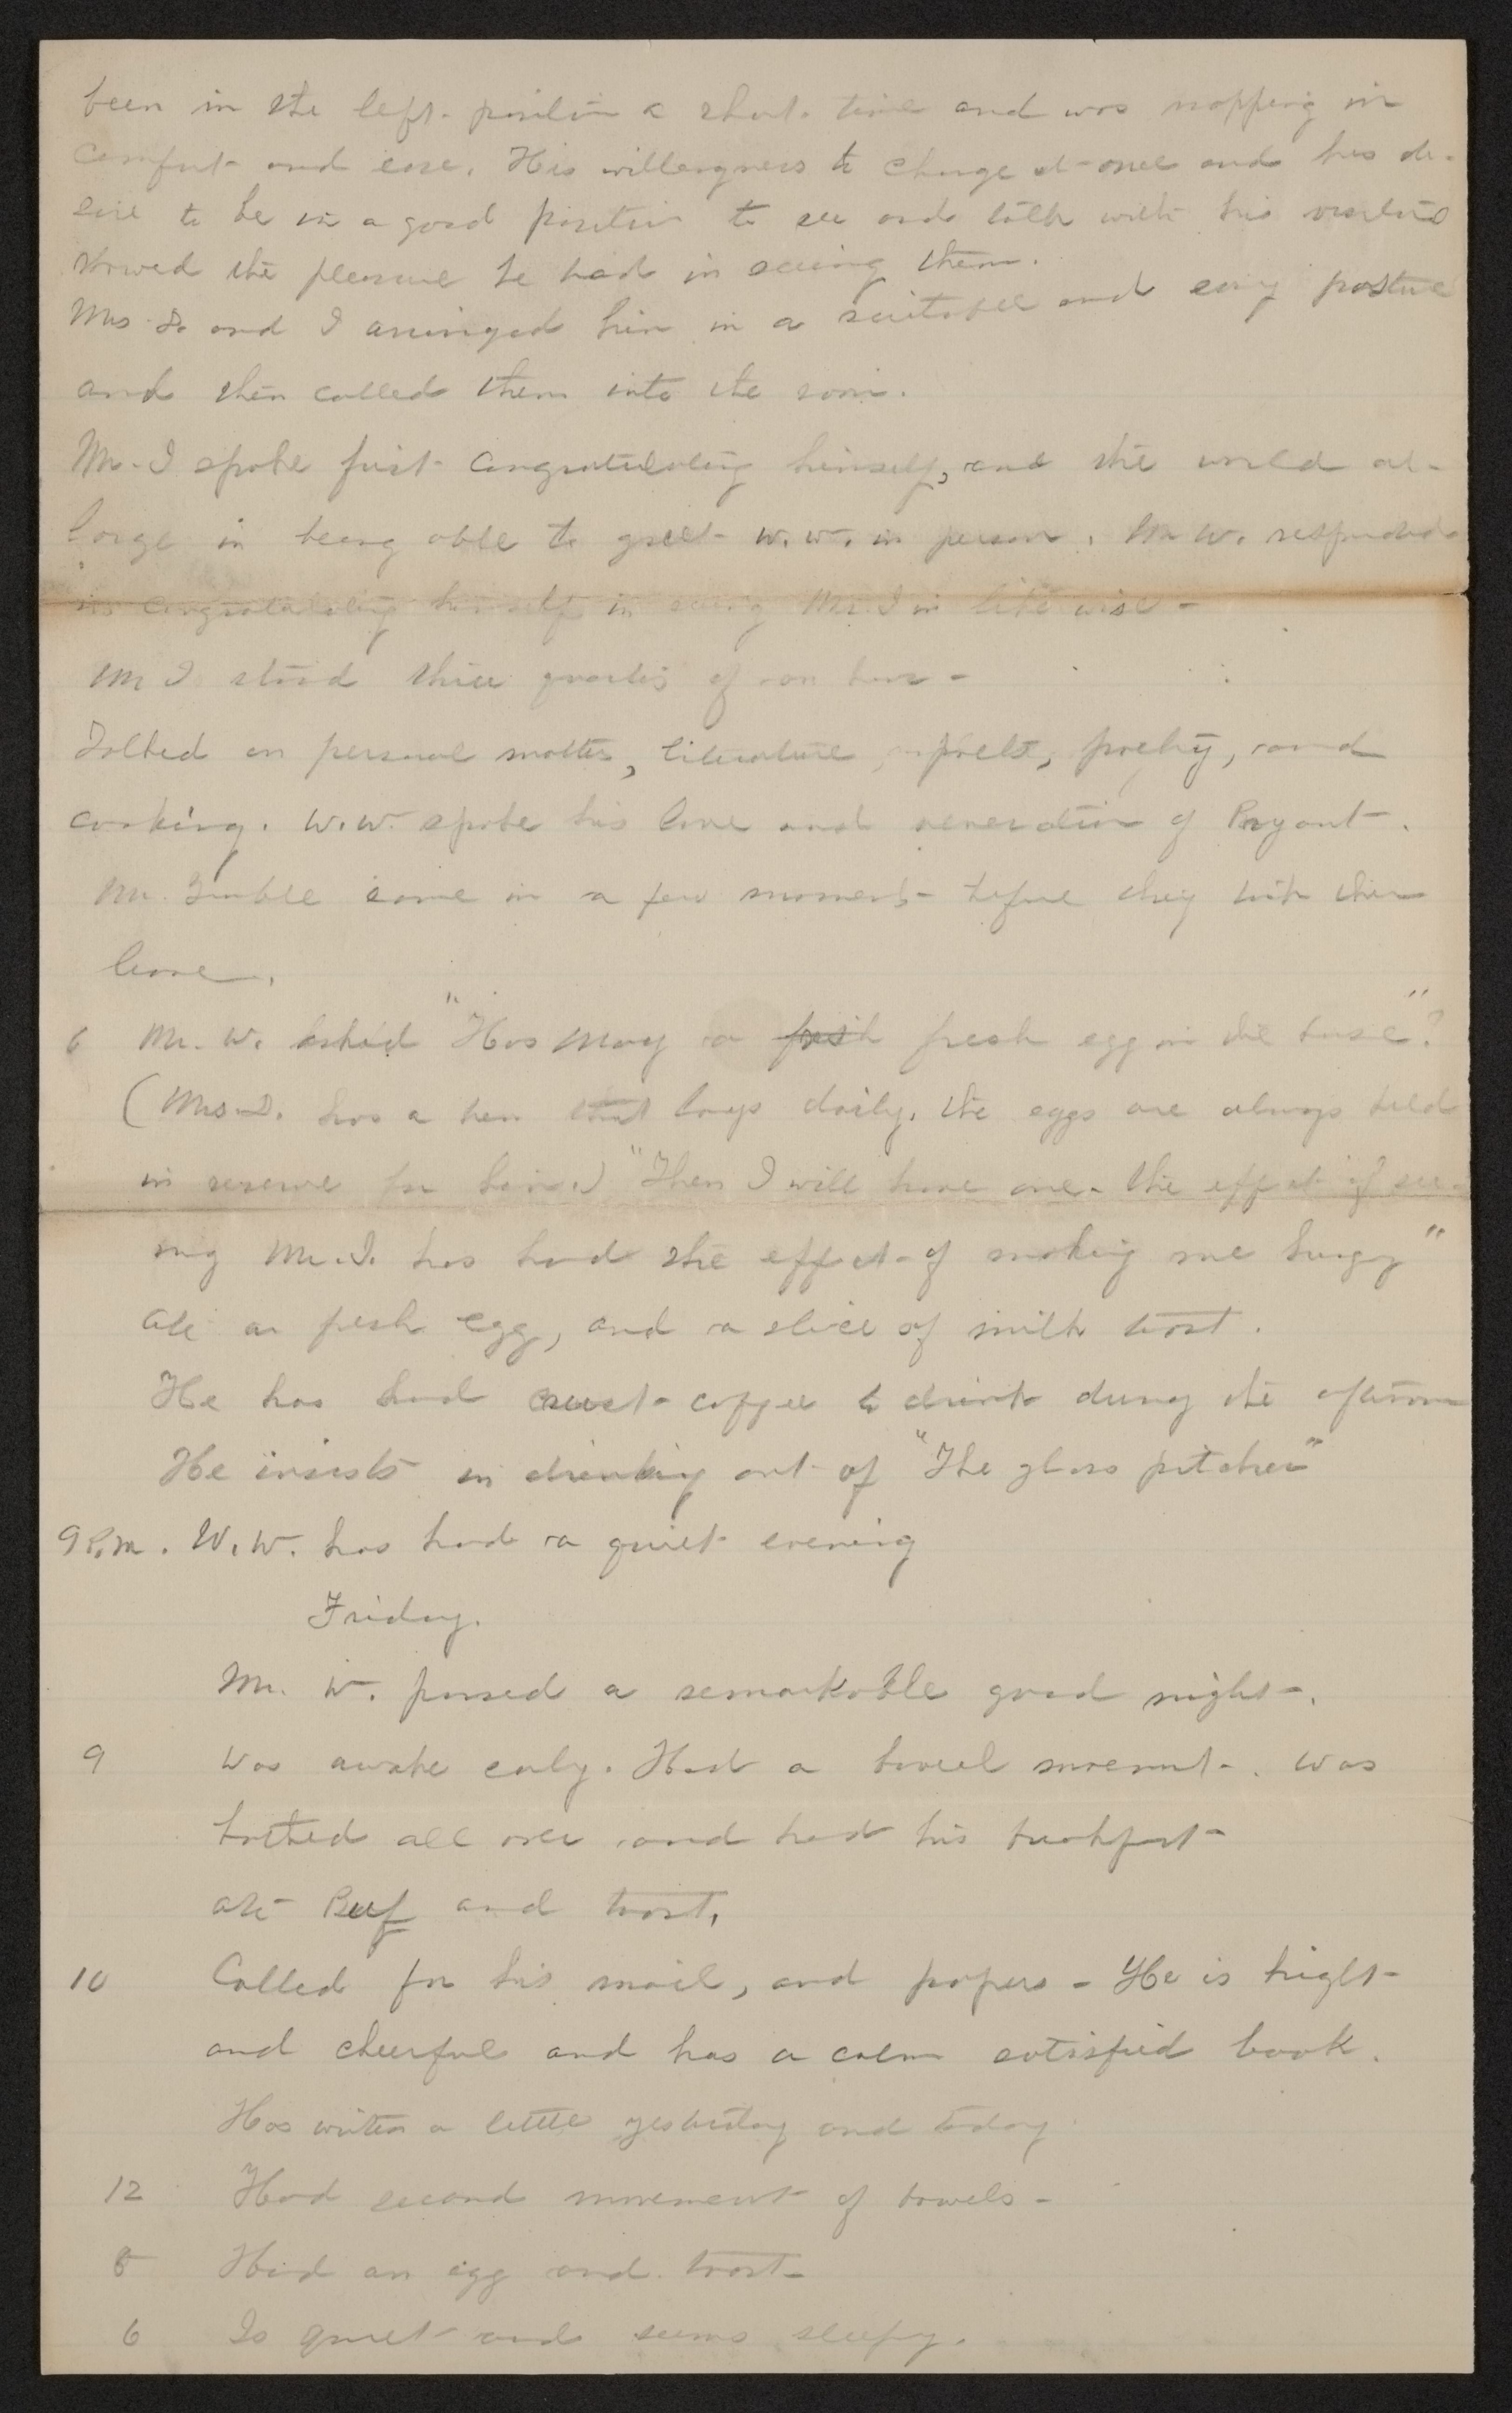 been in the left position a short time and was napping in
comfort and ease. His willingness to change at once and his de-
sire to be in a good position to see and talk with his visitors
showed the pleasure he had in seeing them.
Mrs. D. and I arranged him in a suitable and easy posture
and then called them into the room.
Mr. I spoke first congratulating himself, and the world at
large in being able to greet W.W. in person. Mr W. responded
in congratulating himself in seeing Mr. I in like wise -
Mr I stood three quarters of an hour -
Talked on personal matters, literature, poets, poetry, and
cooking. W.W. spoke his love and veneration of Bryant.
Mr. came in a few moments before they took their
leave.
6 Mr. W. asked "Has Mary a fresh fresh egg in the house"?
(Mrs. D. has a hen that lays daily. the eggs are always held
in reserve for him.) "Then I will have one. the effect of see-
ing Mr. I. has had the effect of making me hungry"
Ate a fresh egg, and a slice of milk toast.
He has had crust coffee to drink during the afternoon
He insists in drinking out of "The glass pitcher"
9 P.m. W.W. has had a quiet evening
Friday.
Mr. W. passed a remarkable good night.
9 Was awake early. Had a bowel movement. Was
bathed all over and had his breakfast
ate Beef and toast.
10 Called for his mail, and papers - He is bright
and cheerful and has a calm satisfied look.
Has written a little yesterday and today
12 Had second movement of bowels -
5 Had an egg and toast -
6 Is quiet and seems sleepy.